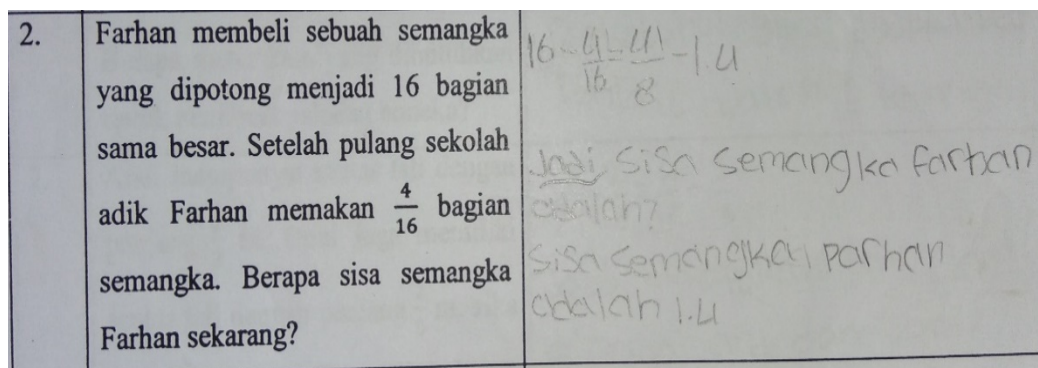 2.
Farhan membeli sebuah semangka
yang dipotong menjadi 16 bagian
sama besar. Setelah pulang sekolah
adik Farhan memakan 4/16 bagian
semangka. Berapa sisa semangka
Farhan sekarang?
16 - 4/16 - 41/8 - 1.4
Jadi sisa semangka farhan
adalah?
sisa semangka parhan
adalah 1.4